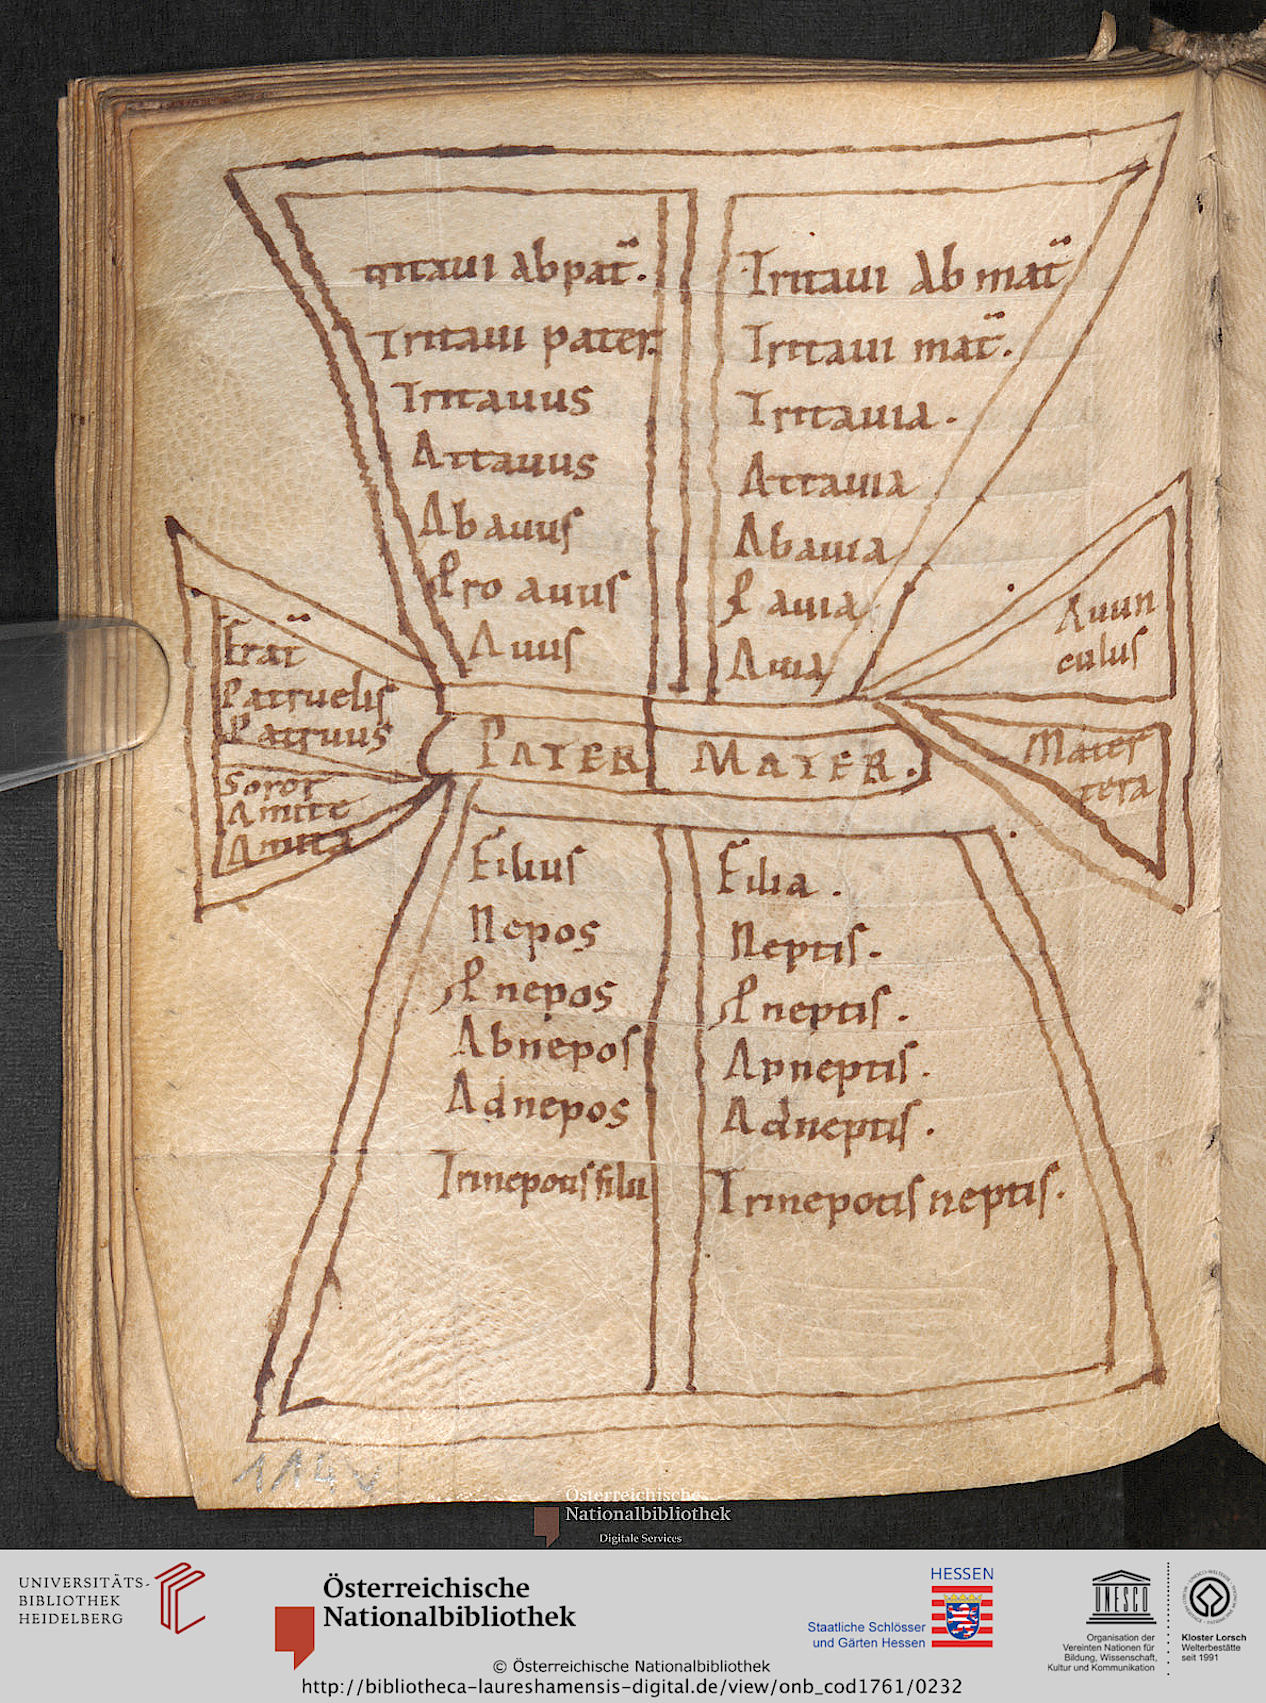 tritaui abpat̄.
Tritaui pater.
Tritauus
Attauus
Abauus
Pro auus
Auus
Tritaui ab mat̄
Tritaui mat̄.
Tritauia.
Attauia
Abauia
P auia
Auia
Frat̄
Patruelis
Patruus
Soror
Amite
Amita
Auun
culus
Mater
tera
PATER
MATER.
Filius
Nepos
P nepos
Abnepos
Adnepos
Trinepotis filii
Filia.
Neptis.
P neptis.
Abneptis.
Adneptis.
Trinepotis neptis.
114v
Österreichische
Nationalbibliothek
Digitale Services
UNIVERSITÄTS-
BIBLIOTHEK
HEIDELBERG
Österreichische
Nationalbibliothek
HESSEN
Staatliche Schlösser
und Gärten Hessen
UNESCO
Organisation der
Vereinten Nationen für
Bildung, Wissenschaft,
Kultur und Kommunikation
Kloster Lorsch
Welterbestätte
seit 1991
© Österreichische Nationalbibliothek
http://bibliotheca-laureshamensis-digital.de/view/onb_cod1761/0232